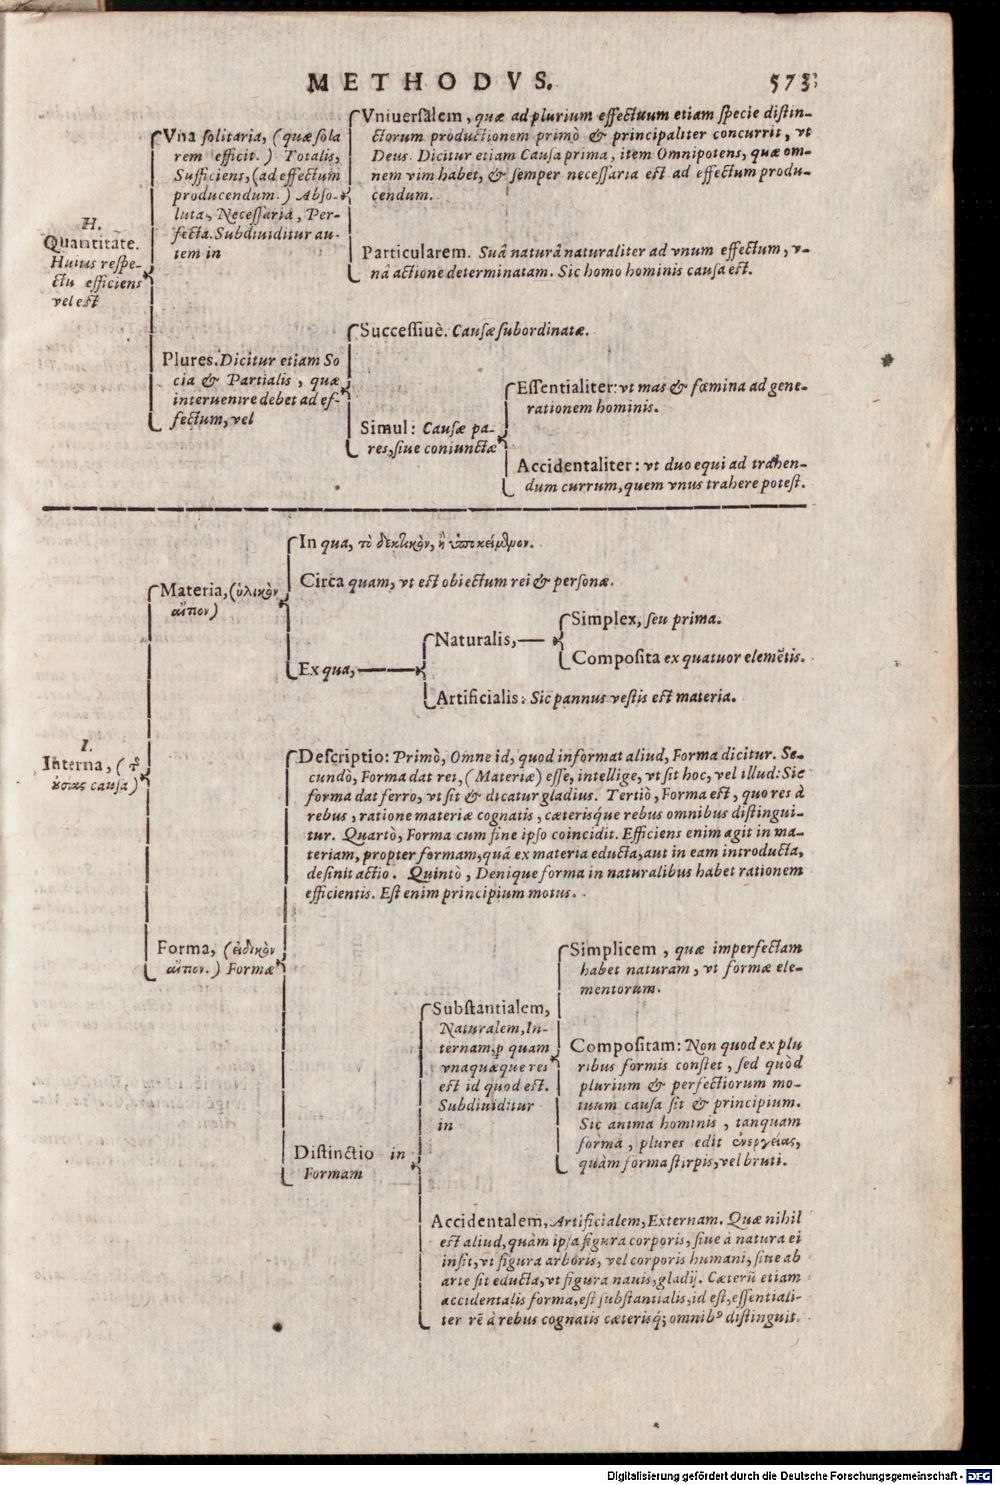 METHODVS. 573
H.
Quantitate.
Huius respe-
ctu efficiens
vel est
Vna solitaria, (quæ sola
rem efficit.) Totalis,
Sufficiens, (ad effectum
producendum.) Abso-
luta, Necessaria, Per-
fecta. Subdiuiditur au-
tem in
Vniuersalem, quæ ad plurium effectuum etiam specie distin-
ctorum productionem primò & principaliter concurrit, vt
Deus. Dicitur etiam Causa prima, item Omnipotens, quæ om-
nem vim habet, & semper necessaria est ad effectum produ-
cendum.
Particularem. Suâ naturâ naturaliter ad vnum effectum, v-
nâ actione determinatam. Sic homo hominis causa est.
Plures. Dicitur etiam So
cia & Partialis, quæ
interuenire debet ad ef-
fectum, vel
Successiuè. Causæ subordinatæ.
Simul: Causæ pa-
res, siue coniunctæ
Essentialiter: vt mas & fœmina ad gene-
rationem hominis.
Accidentaliter: vt duo equi ad trahen-
dum currum, quem vnus trahere potest.
I.
Interna, (τ͂
ȣσίας causa)
Materia, (ὑλικὸν
αἴτιον)
In qua, τὸ δεκτικὸν, ἢ ὑποκείμενον.
Circa quam, vt est obiectum rei & personæ.
Ex qua,
Naturalis,
Simplex, seu prima.
Composita ex quatuor elemẽtis.
Artificialis: Sic pannus vestis est materia.
Forma, (εἰδικὸν
αἴτιον.) Formæ
Descriptio: Primò, Omne id, quod informat aliud, Forma dicitur. Se-
cundò, Forma dat rei, (Materiæ) esse, intellige, vt sit hoc, vel illud: Sic
forma dat ferro, vt sit & dicatur gladius. Tertiò, Forma est, quo res à
rebus, ratione materiæ cognatis, cæterisq́ue rebus omnibus distingui-
tur. Quartò, Forma cum fine ipso coincidit. Efficiens enim agit in ma-
teriam, propter formam, quâ ex materia educta, aut in eam introducta,
desinit actio. Quintò, Denique forma in naturalibus habet rationem
efficientis. Est enim principium motus.
Distinctio in
Formam
Substantialem,
Naturalem, In-
ternam, ꝑ quam
vnaquæque res
est id quod est.
Subdiuiditur
in
Simplicem, quæ imperfectam
habet naturam, vt formæ ele-
mentorum.
Compositam: Non quod ex plu
ribus formis constet, sed quòd
plurium & perfectiorum mo-
tuum causa sit & principium.
Sic anima hominis, tanquam
forma, plures edit ἐνεργείας,
quàm forma stirpis, vel bruti.
Accidentalem, Artificialem, Externam. Quæ nihil
est aliud, quàm ipsa figura corporis, siue à natura ei
insit, vt figura arboris, vel corporis humani, siue ab
arte sit educta, vt figura nauis, gladij. Cæterũ etiam
accidentalis forma, est substantialis, id est, essentiali-
ter rẽ à rebus cognatis cæterisq́; omnibꝰ distinguit.
Digitalisierung gefördert durch die Deutsche Forschungsgemeinschaft - DFG